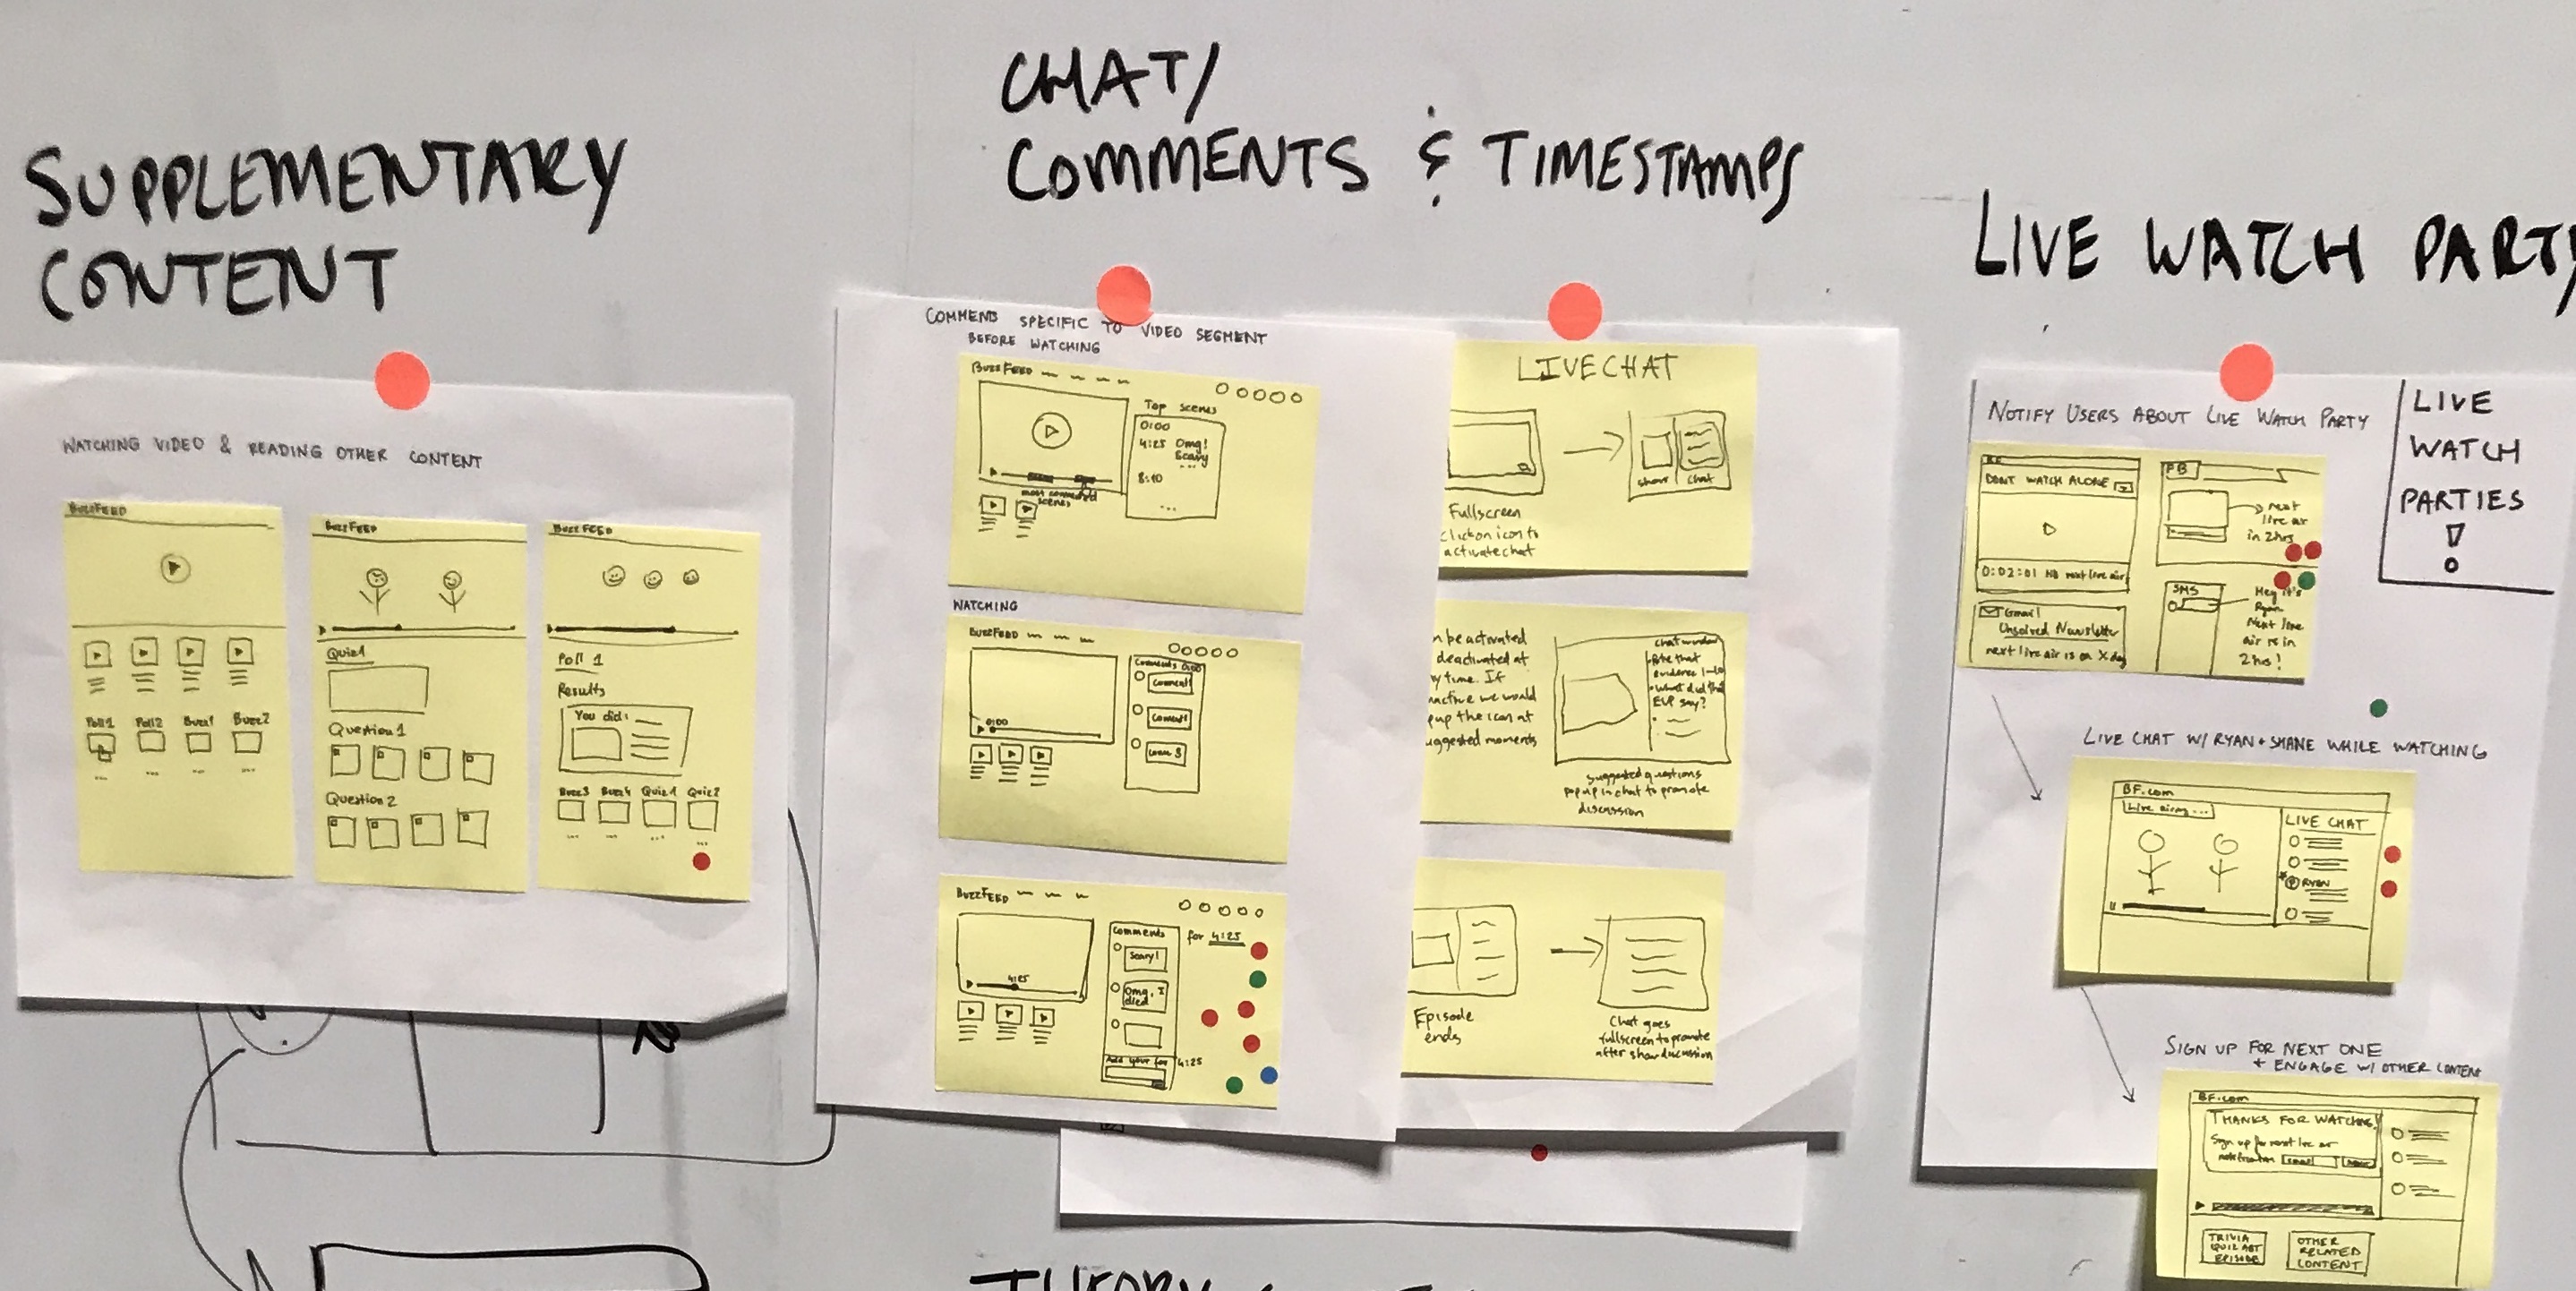 SUPPLEMENTARY
CONTENT
WATCHING VIDEO & READING OTHER CONTENT
BUZZFEED
Poll1 Poll2 Buzz1 Buzz2
BUZZFEED
Quiz1
Question1
Question2
BUZZFEED
Poll 1
Results
You did:
Buzz3 Buzz4 Quiz1 Quiz2
CHAT/
COMMENTS & TIMESTAMPS
COMMENTS SPECIFIC TO VIDEO SEGMENT
BEFORE WATCHING
BUZZFEED
Top scenes
0:00
4:25 Omg!
Scary
...
8:10
...
most commented
scenes
WATCHING
BUZZFEED
Comments 0:00
0:00
BUZZFEED
Comments for 4:25
Scary!
4:25
Omg, I
died
Add your for 4:25
LIVECHAT
show chat
Fullscreen
click on icon to
activate chat
be activated
deactivated at
time. If
we would
the icon at
suggested moments
chat window
that
evidence
what did that
EVP say?
suggested questions
pop up in chat to promote
discussion
Episode
ends
Chat goes
fullscreen to promote
after show discussion
THEORY
LIVE WATCH PARTY
NOTIFY USERS ABOUT LIVE WATCH PARTY
LIVE
WATCH
PARTIES
!
BF
DONT WATCH ALONE
0:02:01 next live air
FB
next
live air
in 2hrs
Gmail
Unsolved Newsletter
next live air is on X day
SMS
Hey it's
Ryan
Next live
air is in
2hrs!
LIVE CHAT W/ RYAN + SHANE WHILE WATCHING
BF.com
Live airing ...
LIVE CHAT
RYAN
SIGN UP FOR NEXT ONE
+ ENGAGE W/ OTHER CONTENT
BF.com
THANKS FOR WATCHING!
Sign up for next live air
TRIVIA
QUIZ ABT
EPISODE
OTHER
RELATED
CONTENT